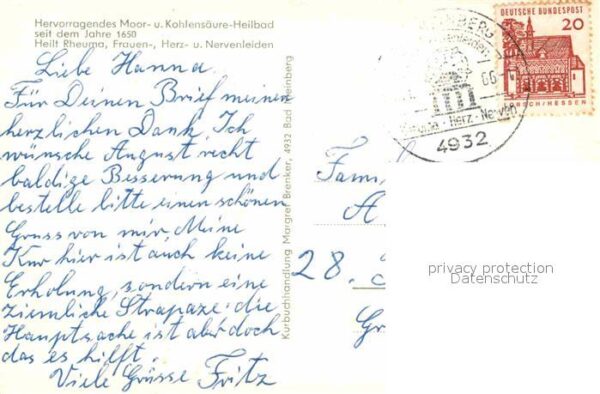 Hervorragendes Moor- u. Kohlensäure-Heilbad
seit dem Jahre 1650
Heilt Rheuma, Frauen-, Herz- u. Nervenleiden
Liebe Hanna
Für Deinen Brief meinen
herzlichen Dank. Ich
wünsche August recht
baldige Besserung und
bestelle bitte einen schönen
Gruss von mir. Meine
Kur hier ist auch keine
Erholung, sondern eine
ziemliche Strapaze; die
Hauptsache ist aber doch
das es hilft.
Viele Grüsse Fritz
Kurbuchhandlung Margret Brenker, 4932 Bad Meinberg
DEUTSCHE BUNDESPOST
20
Herz - Nerven
4932
Fam
A
28.
G
privacy protection
Datenschutz